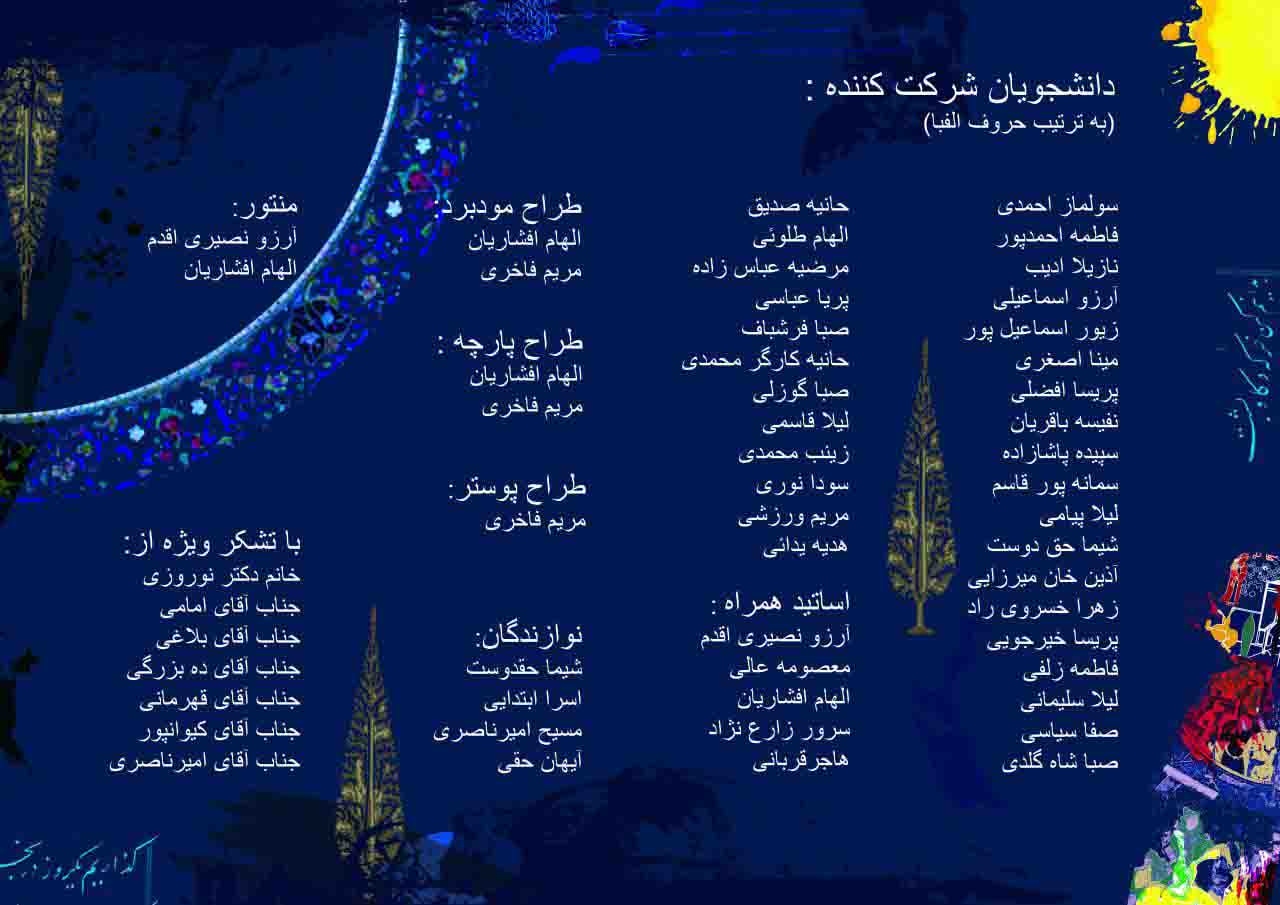 دانشجویان شرکت کننده :
(به ترتیب حروف الفبا)
سولماز احمدی
فاطمه احمدپور
نازیلا ادیب
آرزو اسماعیلی
زیور اسماعیل پور
مینا اصغری
پریسا افضلی
نفیسه باقریان
سپیده پاشازاده
سمانه پور قاسم
لیلا پیامی
شیما حق دوست
آذین خان میرزایی
زهرا خسروی راد
پریسا خیرجویی
فاطمه زلفی
لیلا سلیمانی
صفا سیاسی
صبا شاه گلدی
حانیه صدیق
الهام طلوئی
مرضیه عباس زاده
پریا عباسی
صبا فرشباف
حانیه کارگر محمدی
صبا گوزلی
لیلا قاسمی
زینب محمدی
سودا نوری
مریم ورزشی
هدیه یدائی
اساتید همراه :
آرزو نصیری اقدم
معصومه عالی
الهام افشاریان
سرور زارع نژاد
هاجرقربانی
طراح مودبرد:
الهام افشاریان
مریم فاخری
طراح پارچه :
الهام افشاریان
مریم فاخری
طراح پوستر:
مریم فاخری
نوازندگان:
شیما حقدوست
اسرا ابتدایی
مسیح امیرناصری
آیهان حقی
منتور:
آرزو نصیری اقدم
الهام افشاریان
با تشکر ویژه از:
خانم دکتر نوروزی
جناب آقای امامی
جناب آقای بلاغی
جناب آقای ده بزرگی
جناب آقای قهرمانی
جناب آقای کیوانپور
جناب آقای امیرناصری